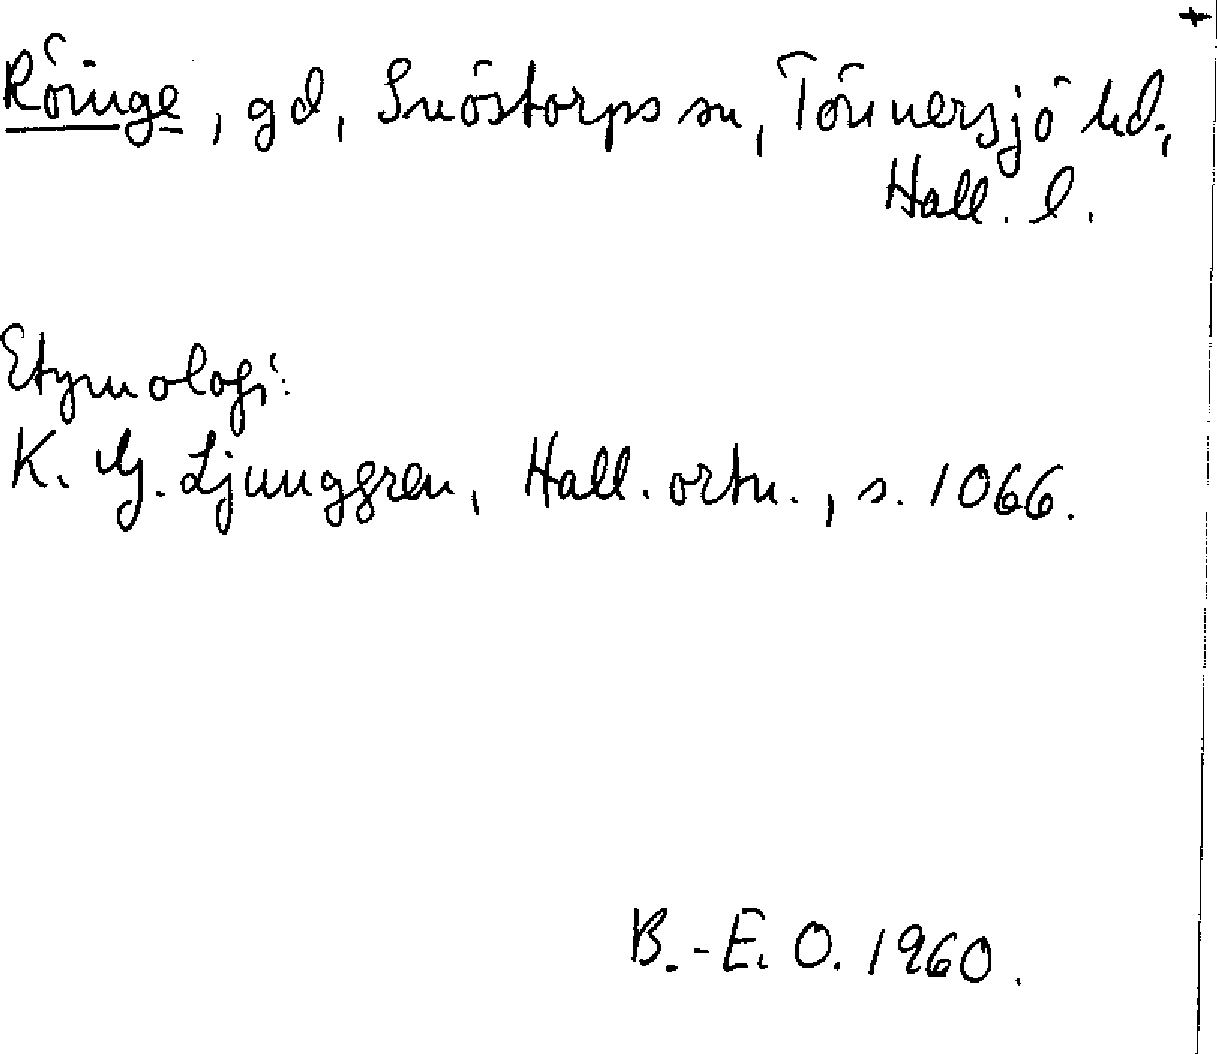 +
Röinge, gd, Snöstorps sn, Tönnersjö hd,
Hall. l.
Etymologi:
K. G. Ljunggren, Hall. ortn., s. 1066.
B.-E. O. 1960.